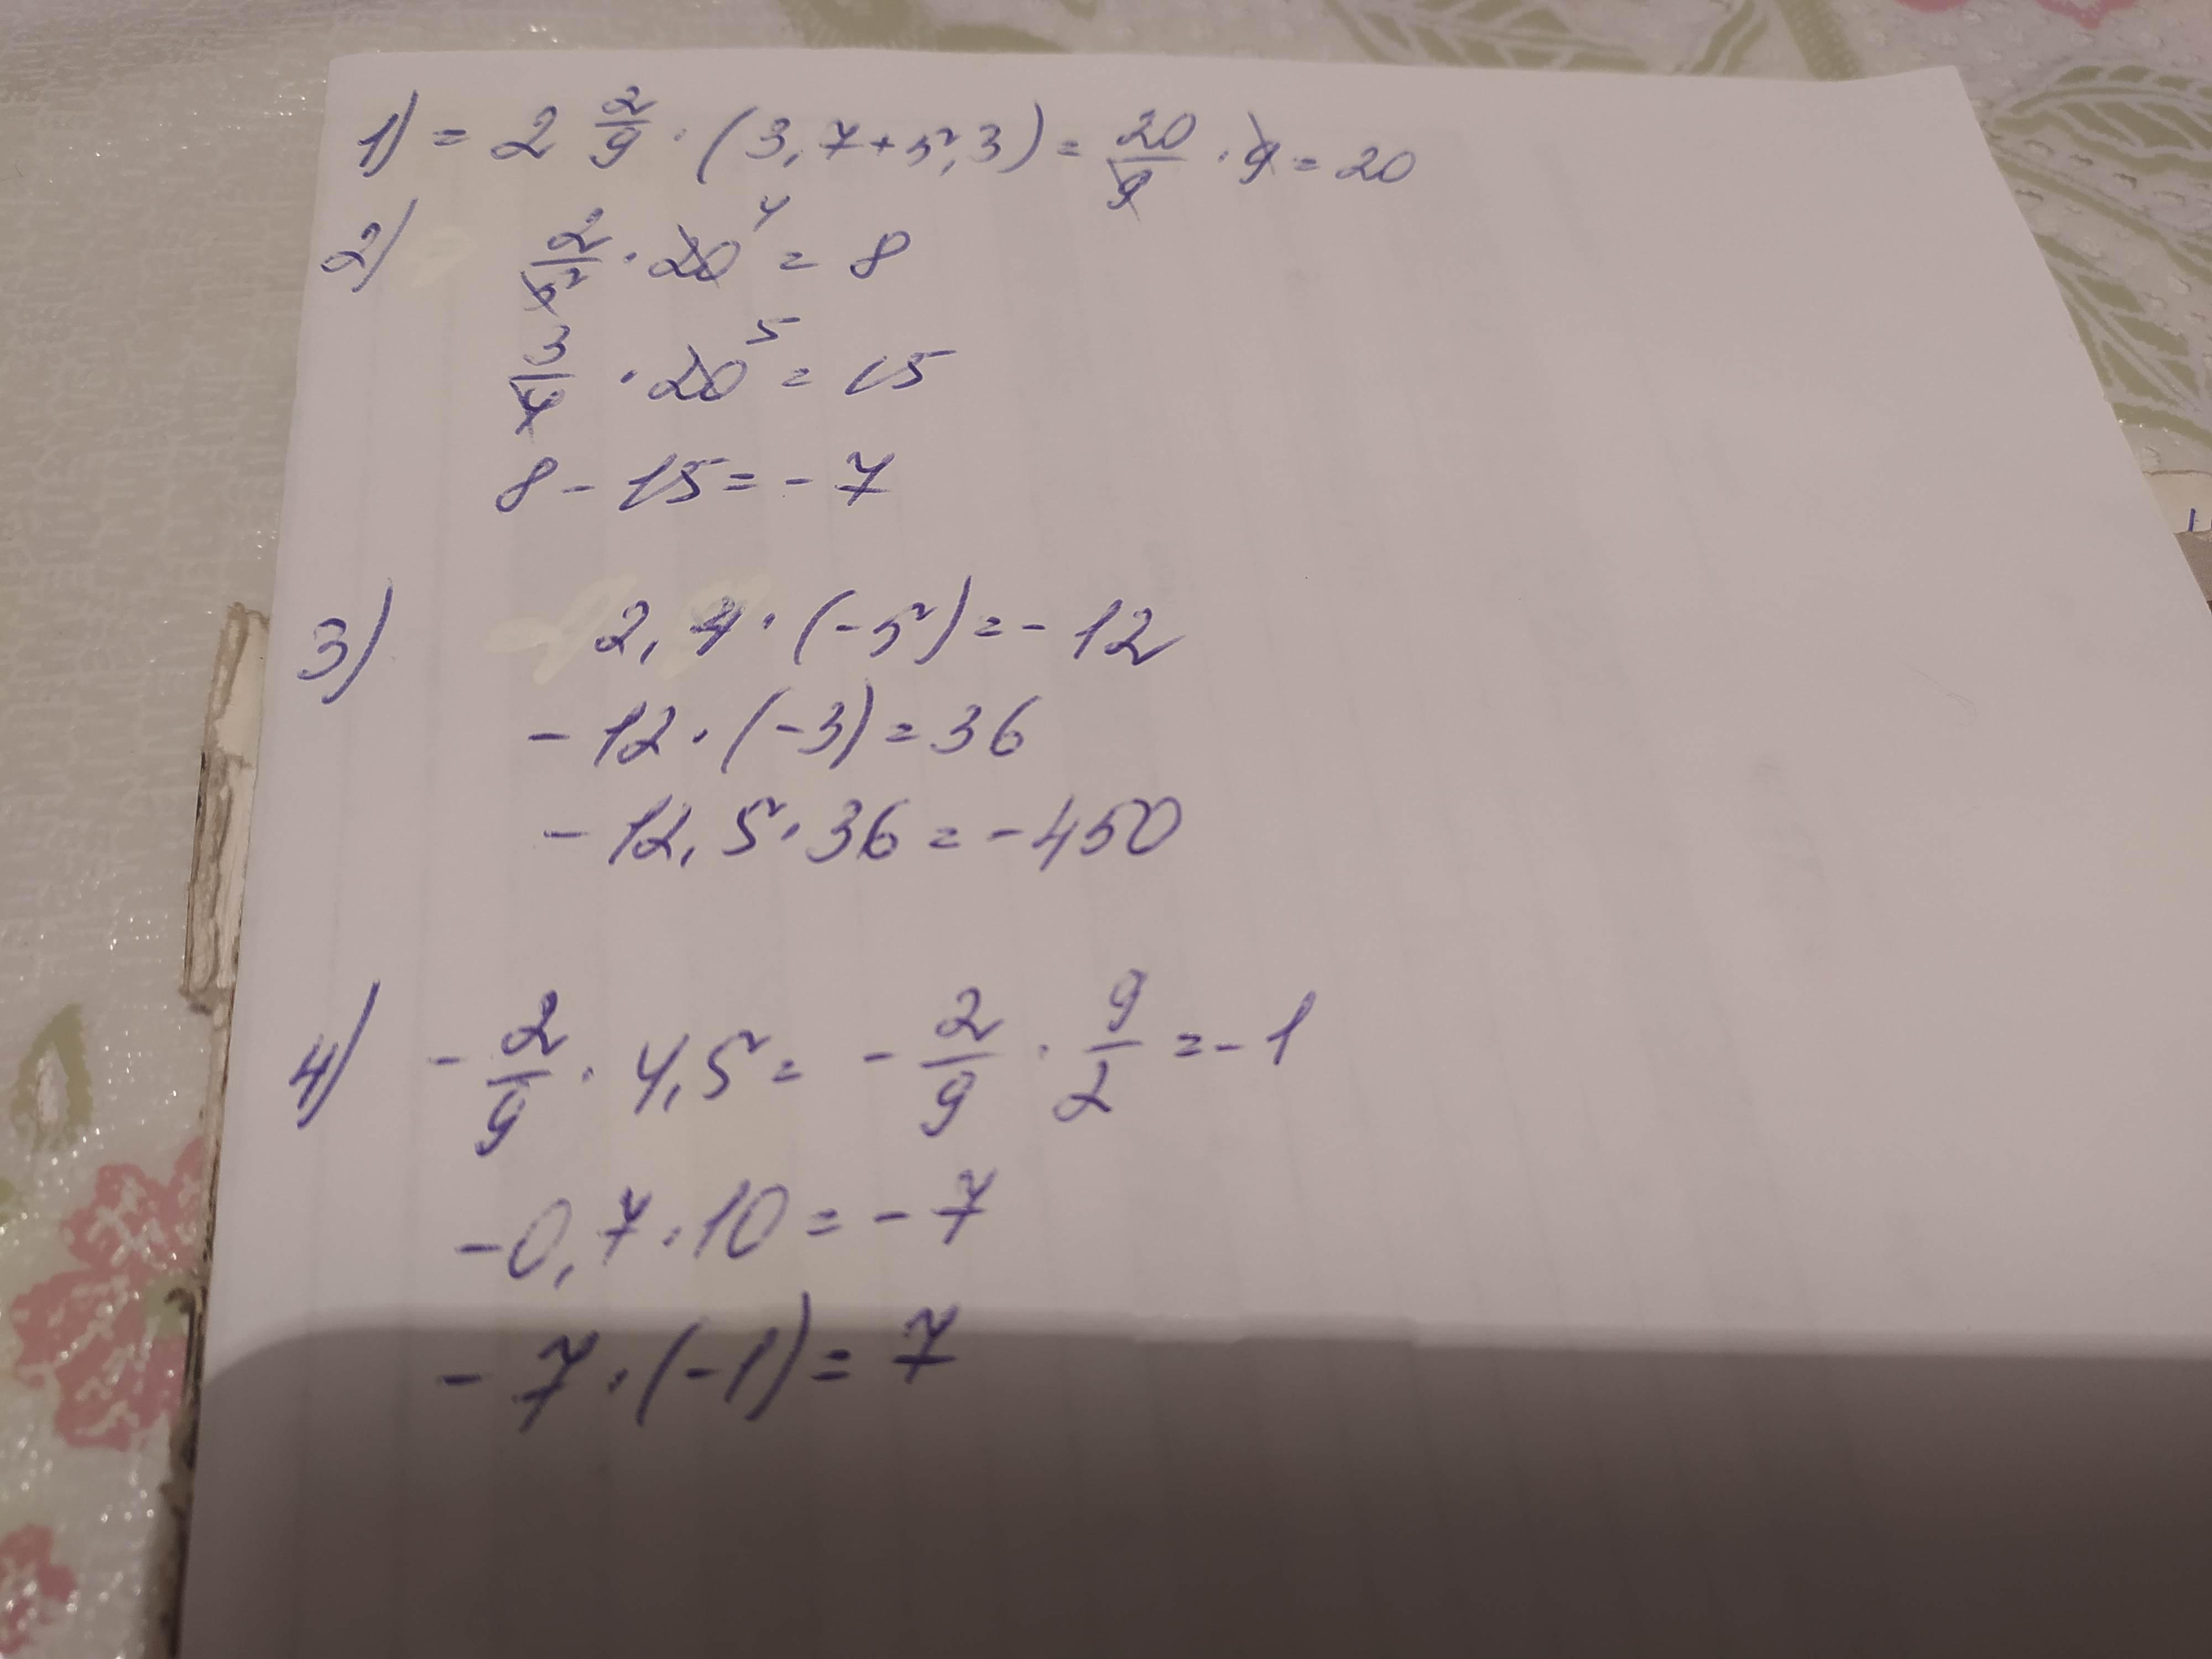 1) = 2 2/9 · (3,7+5,3) = 20/9 · 9 = 20
2) 2/5 · 20 4 = 8
3/4 · 20 5 = 15
8 - 15 = - 7
3) 2,4 · (-5) = - 12
- 12 · (-3) = 36
- 12,5 · 36 = - 450
4) - 2/9 · 4,5 = - 2/9 · 9/2 = - 1
- 0,7 · 10 = - 7
- 7 · (-1) = 7